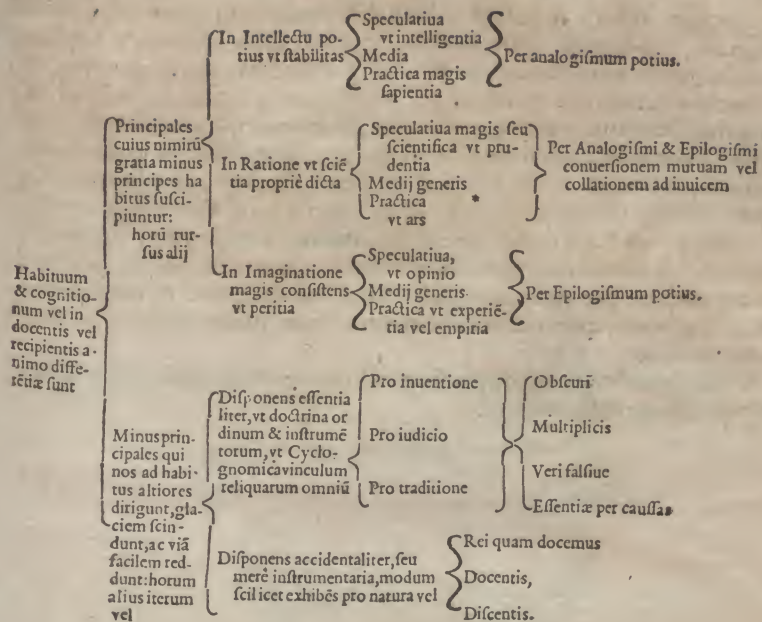 Habituum
& cognitio-
num vel in
docentis vel
recipientis a-
nimo diffe-
rētiæ sunt
Principales
cuius nimirū
gratia minus
principes ha
bitus susci-
piuntur:
horū rur-
sus alij
In Intellectu po-
tius vt stabilitas
Speculatiua
vt intelligentia
Media
Practica magis
sapientia
Per analogismum potius.
In Ratione vt sciē
tia propriè dicta
Speculatiua magis seu
scientifica vt pru-
dentia
Medij generis
Practica *
vt ars
Per Analogismi & Epilogismi
conuersionem mutuam vel
collationem ad inuicem
In Imaginatione
magis consistens
vt peritia
Speculatiua,
vt opinio
Medij generis.
Practica vt experiē-
tia vel empiria
Per Epilogismum potius.
Minus prin-
cipales qui
nos ad habi-
tus altiores
dirigunt, gla-
ciem scin-
dunt, ac viā
facilem red-
dunt: horum
alius iterum
vel
Disponens essentia
liter, vt doctrina or
dinum & instrumē
torum, vt Cyclo-
gnomica vinculum
reliquarum omniū
Pro inuentione
Pro iudicio
Pro traditione
Obscuri
Multiplicis
Veri falsiue
Essentiæ per caussas
Disponens accidentaliter, seu
merè instrumentaria, modum
scilicet exhibēs pro natura vel
Rei quam docemus
Docentis,
Discentis.